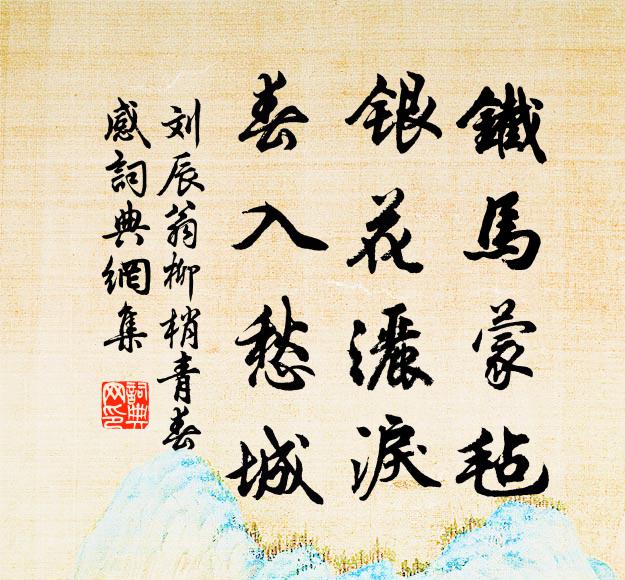 鐵馬蒙毡
銀花灑淚
春入愁城
刘辰翁柳梢青春
感詞典網集
詞典网印